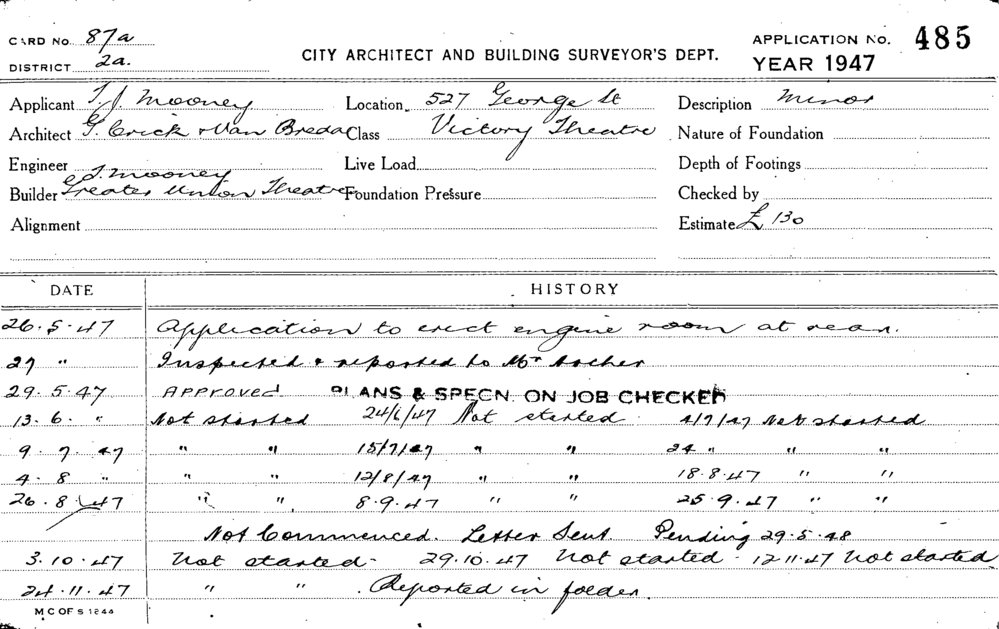 CARD No. 87a
CITY ARCHITECT AND BUILDING SURVEYOR'S DEPT.
APPLICATION No. 485
DISTRICT 2a.
YEAR 1947
Applicant T. J. Mooney Location 527 George St Description Minor
Architect G. Crick & Van Breda Class Victory Theatre Nature of Foundation
Engineer Live Load Depth of Footings
Builder T. Mooney Greater Union Theatre Foundation Pressure Checked by
Alignment Estimate £ 130
DATE HISTORY
26.5.47 Application to erect engine room at rear.
27 " Inspected & reported to Mr Archer
29.5.47 APPROVED PLANS & SPECN. ON JOB CHECKED
13.6. " Not started 24/6/47 Not started 4/7/47 Not started
9.7.47 " " 15/7/47 " " 24 " " "
4.8 " " " 12/8/47 " " 18.8.47 " "
26.8.47 " " 8.9.47 " " 25.9.47 " "
Not Commenced. Letter Sent Pending 29.5.48
3.10.47 Not started. 29.10.47 Not started. 12.11.47 Not started
24.11.47 " " Reported in folder.
M C OF S 1244